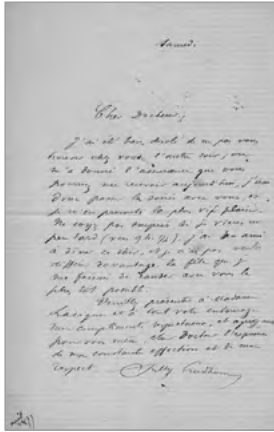 Samedi.
Cher Docteur,
J'ai été bien de ne pas vous
trouver chez vous l'autre soir; on
m'a donné l'assurance que vous
pourriez me recevoir aujourd'hui, j'irai
donc passer la soirée avec vous, et
je m'en promets le plus vif plaisir.
Ne soyez pas surpris si je viens un
peu tard (vers 9h ½). J'ai un ami
à dîner ce soir, et je n'ai pas voulu
différer davantage la fête que je
me faisais de causer avec vous le
plus tôt possible.
Veuillez présenter à Madame
et à tout votre entourage
mes compliments respectueux, et agréez
pour vous même, cher Docteur l'expression
de ma constante affection et de mon
respect.
Sully Prudhomme